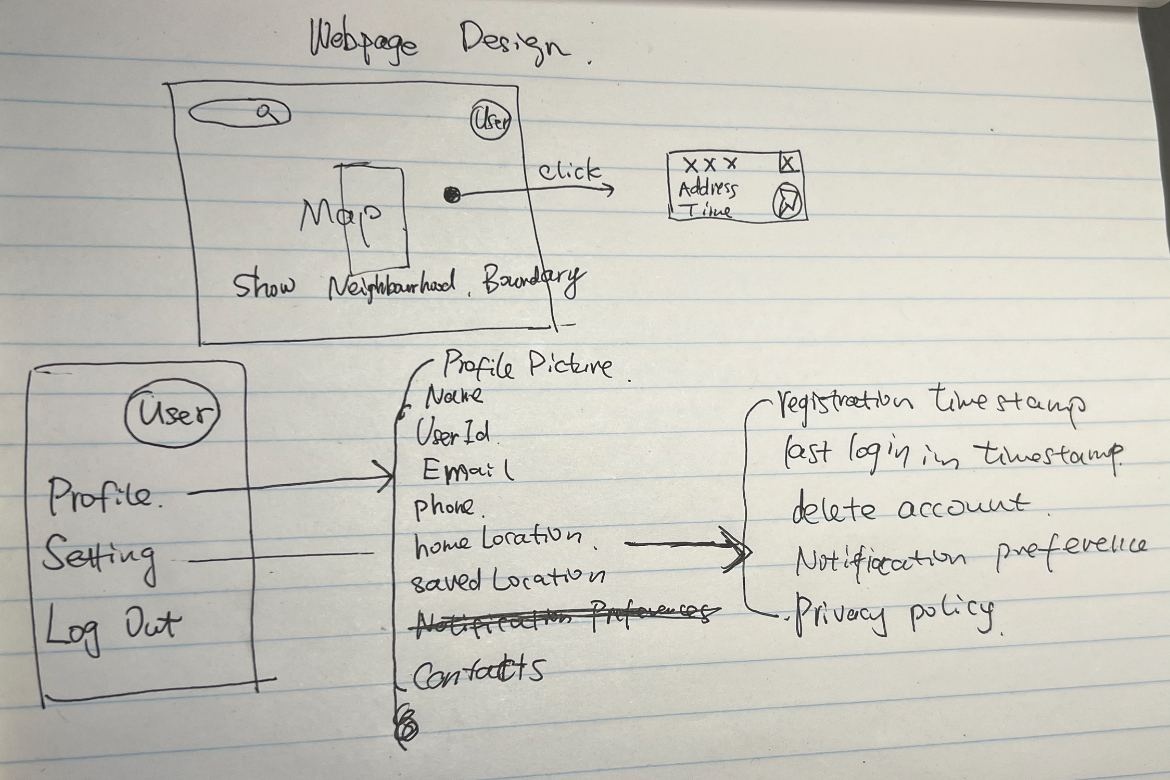 Webpage Design.
User
click
X X X X
Address
Time
Map
Show Neighbourhood. Boundary
User
Profile.
Setting
Log Out
Profile Picture.
Name
User Id.
Email
phone.
home Location.
saved Location
Notification Preferences
Contacts
registration timestamp
last login in timestamp.
delete account.
Notification preference
Privacy policy.